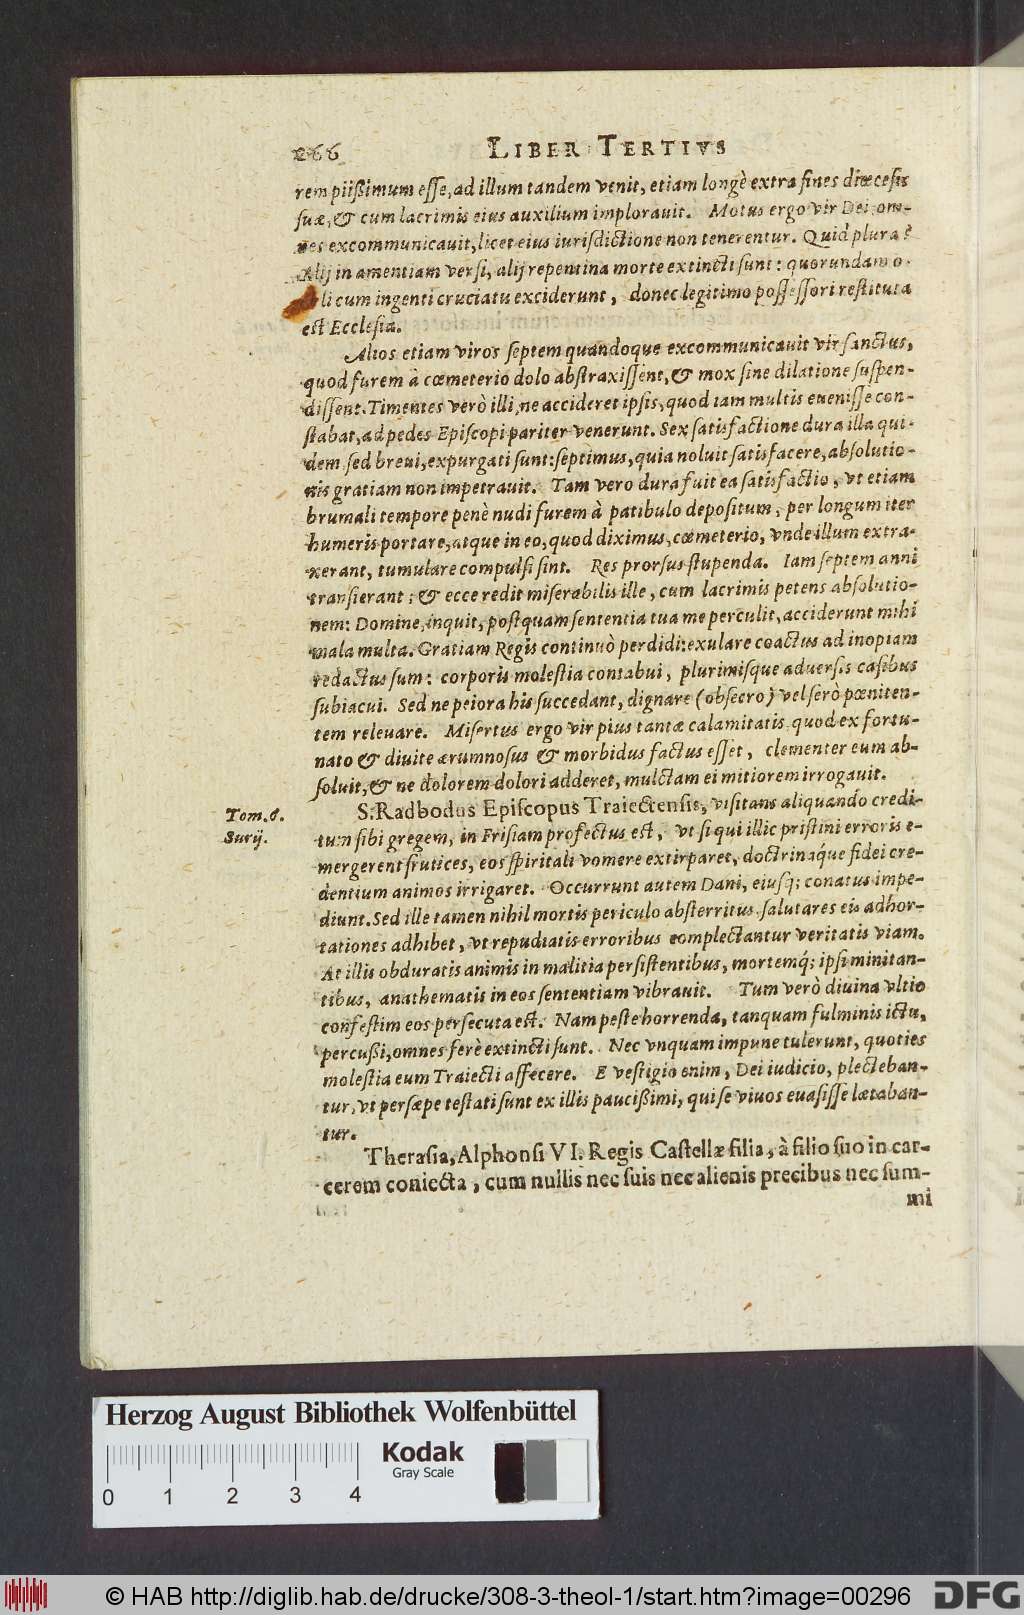 266 LIBER TERTIVS
rem piißimum eſſe, ad illum tandem venit, etiam longè extra fines diœceſis
ſuæ, & cum lacrimis eius auxilium implorauit. Motus ergo vir Dei, om-
nes excommunicauit, licet eius iuriſdictione non tenerentur. Quid plura?
Alij in amentiam verſi, alij repentina morte extincti ſunt: quorundam o-
culi cum ingenti cruciatu exciderunt, donec legitimo poſſeſſori reſtituta
est Eccleſia.
Alios etiam viros ſeptem quandoque excommunicauit vir ſanctus,
quod furem à cœmeterio dolo abſtraxiſſent, & mox ſine dilatione ſuſpen-
diſſent. Timentes verò illi, ne accideret ipſis, quod iam multis eueniſſe con-
ſtabat, ad pedes Epiſcopi pariter venerunt. Sex ſatisfactione dura illa qui-
dem ſed breui, expurgati ſunt: ſeptimus, quia noluit ſatisfacere, abſolutio-
nis gratiam non impetrauit. Tam vero dura fuit ea ſatisfactio, vt etiam
brumali tempore penè nudi furem à patibulo depoſitum, per longum iter
humeris portare, atque in eo, quod diximus, cœmeterio, vnde illum extra-
xerant, tumulare compulſi ſint. Res prorſus ſtupenda. Iam ſeptem anni
tranſierant: & ecce redit miſerabilis ille, cum lacrimis petens abſolutio-
nem: Domine, inquit, poſtquam ſententia tua me perculit, acciderunt mihi
mala multa. Gratiam Regis continuò perdidi: exulare coactus ad inopiam
redactus ſum: corporis moleſtia contabui, plurimiſque aduerſis caſibus
ſubiacui. Sed ne peiora his ſuccedant, dignare (obſecro) vel ſerò pœniten-
tem releuare. Miſertus ergo vir pius tantæ calamitatis, quod ex fortu-
nato & diuite ærumnoſus & morbidus factus eſſet, clementer eum ab-
ſoluit, & ne dolorem dolori adderet, mulctam ei mitiorem irrogauit.
Tom. 6.
Surij.
S. Radbodus Epiſcopus Traiectenſis, viſitans aliquando credi-
tum ſibi gregem, in Friſiam profectus est, vt ſi qui illic priſtini erroris e-
mergerent frutices, eos ſpiritali vomere extirparet, doctrinaq́ue fidei cre-
dentium animos irrigaret. Occurrunt autem Dani, eiuſq; conatus impe-
diunt. Sed ille tamen nihil mortis periculo abſterritus ſalutares eis adhor-
tationes adhibet, vt repudiatis erroribus complectantur veritatis viam.
At illis obduratis animis in malitia perſiſtentibus, mortemq́; ipſi minitan-
tibus, anathematis in eos ſententiam vibrauit. Tum verò diuina vltio
confeſtim eos perſecuta est. Nam peſte horrenda, tanquam fulminis ictu,
percußi, omnes ferè extincti ſunt. Nec vnquam impune tulerunt, quoties
moleſtia eum Traiecti affecere. E veſtigio enim, Dei iudicio, plecteban-
tur, vt perſæpe teſtati ſunt ex illis paucißimi, qui ſe viuos euaſiſſe lætaban-
tur.
Theraſia, Alphonſi VI. Regis Caſtellæ filia, à filio ſuo in car-
cerem coniecta, cum nullis nec ſuis nec alienis precibus nec ſum-
mi
Herzog August Bibliothek Wolfenbüttel
Kodak
Gray Scale
0 1 2 3 4
© HAB http://diglib.hab.de/drucke/308-3-theol-1/start.htm?image=00296
DFG